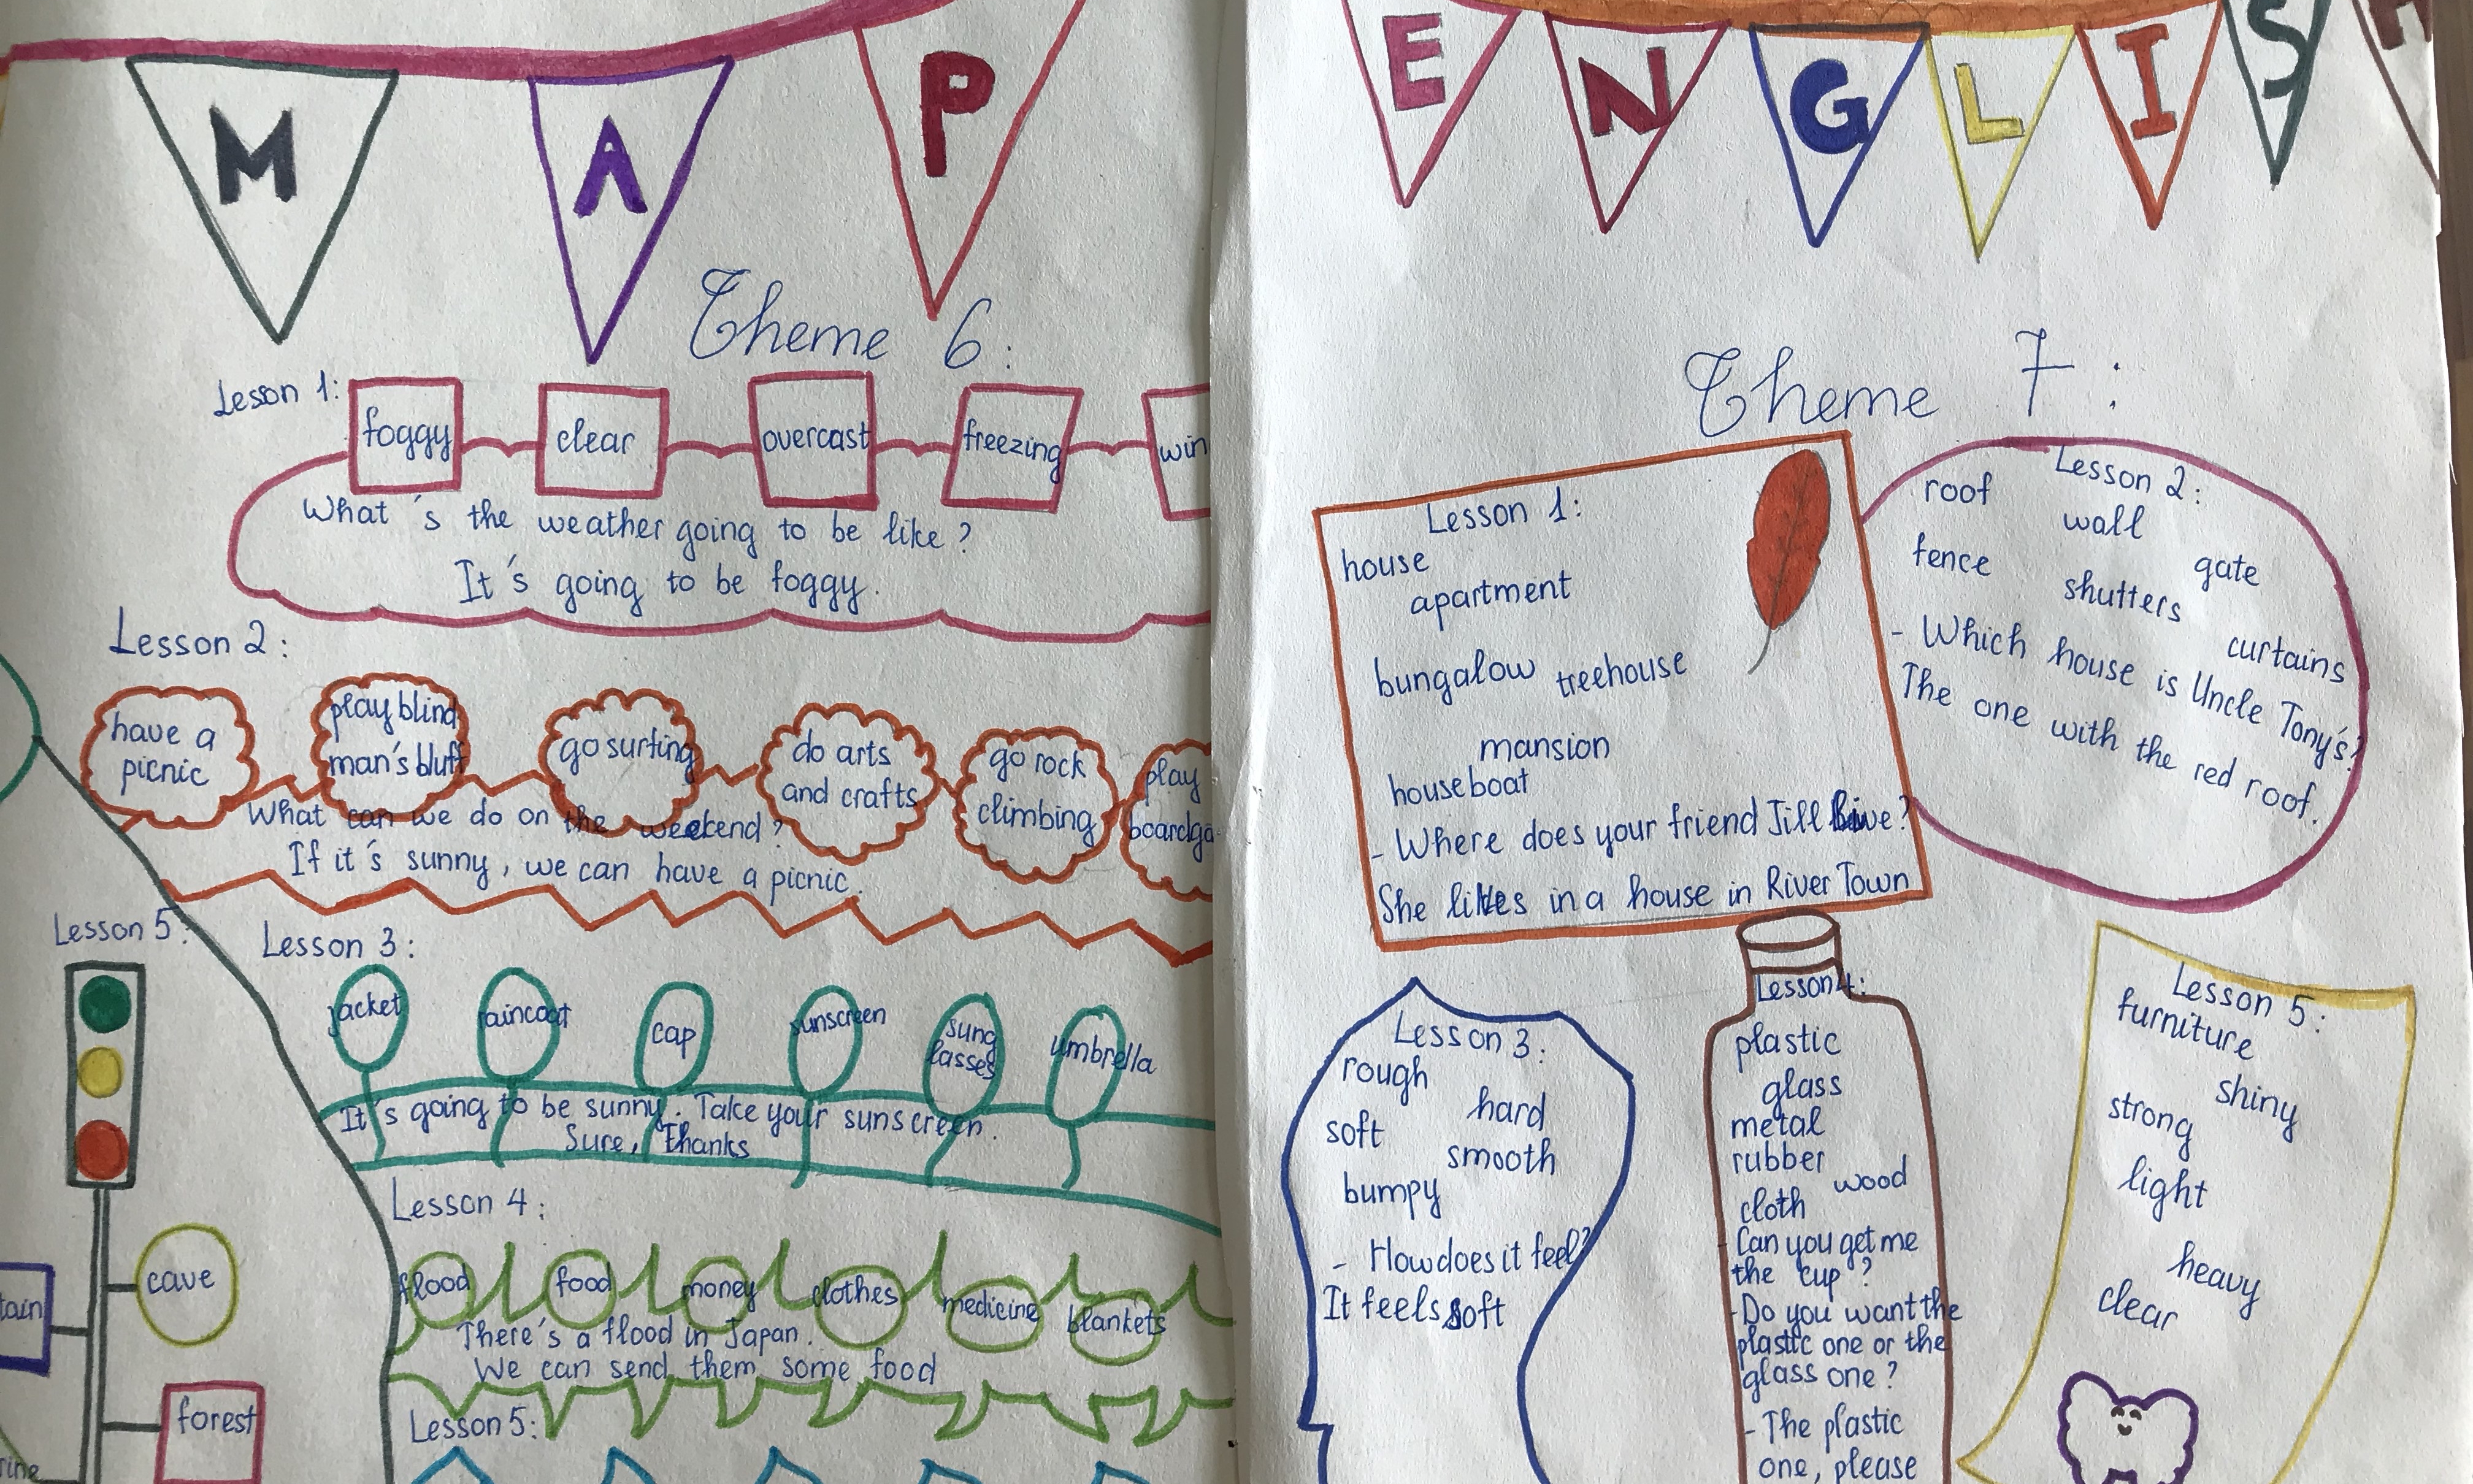 M A P
Theme 6:
Lesson 1:
foggy clear overcast freezing
What's the weather going to be like?
It's going to be foggy.
Lesson 2:
have a picnic
play blind man's bluff
go surfing
do arts and crafts
go rock climbing
play
What can we do on the weekend?
If it's sunny, we can have a picnic.
Lesson 3:
jacket raincoat cap sunscreen sunglasses umbrella
It's going to be sunny. Take your sunscreen.
Sure, Thanks
Lesson 4:
flood food money clothes medicine blankets
There's a flood in Japan.
We can send them some food
Lesson 5:
Lesson 5:
cave
forest
E N G L I S H
Theme 7:
Lesson 1:
house
apartment
bungalow treehouse
mansion
houseboat
- Where does your friend Jill live?
She lives in a house in River Town
Lesson 2:
roof
wall
fence
gate
shutters
curtains
- Which house is Uncle Tony's?
The one with the red roof.
Lesson 3:
rough
hard
soft
smooth
bumpy
- How does it feel?
It feels soft
Lesson 4:
plastic
glass
metal
rubber
wood
cloth
- Can you get me
the cup?
- Do you want the
plastic one or the
glass one?
- The plastic
one, please
Lesson 5:
furniture
shiny
strong
light
heavy
clear